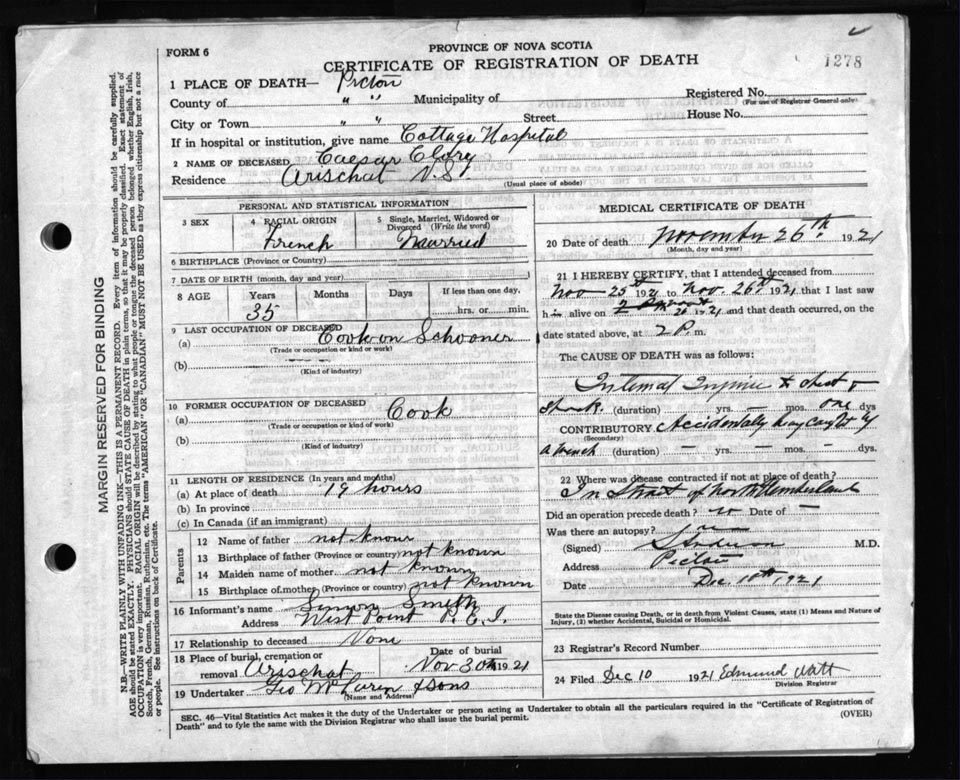 FORM 6
PROVINCE OF NOVA SCOTIA
CERTIFICATE OF REGISTRATION OF DEATH
1278
1 PLACE OF DEATH— Pictou
Registered No.
(For use of Registrar General only)
County of " " Municipality of
City or Town " " Street House No.
If in hospital or institution, give name Cottage Hospital
2 NAME OF DECEASED Caesar Clory
Residence Arischat N.S.
(Usual place of abode)
PERSONAL AND STATISTICAL INFORMATION
3 SEX
4 RACIAL ORIGIN French
5 Single, Married, Widowed or Divorced (Write the word) Married
6 BIRTHPLACE (Province or Country)
7 DATE OF BIRTH (month, day and year)
8 AGE Years 35 Months Days If less than one day, hrs. or min.
9 LAST OCCUPATION OF DECEASED
(a) Cook on Schooner
(Trade or occupation or kind or work)
(b)
(Kind of industry)
10 FORMER OCCUPATION OF DECEASED
(a) Cook
(Trade or occupation or kind of work)
(b)
(Kind of industry)
11 LENGTH OF RESIDENCE (In years and months)
(a) At place of death 19 hours
(b) In province
(c) In Canada (if an immigrant)
Parents
12 Name of father not known
13 Birthplace of father (Province or country) not known
14 Maiden name of mother not known
15 Birthplace of mother (Province or country) not known
16 Informant's name Simon Smith
Address West Point P.E.I.
17 Relationship to deceased None
18 Place of burial, cremation or removal Arischat
Date of burial Nov 30th 1921
19 Undertaker Geo McLaren & Sons
(Name and Address)
MEDICAL CERTIFICATE OF DEATH
20 Date of death November 26th 1921
(Month, day and year)
21 I HEREBY CERTIFY, that I attended deceased from
Nov 25th 1921 to Nov. 26th 1921 that I last saw
him alive on 26 1921 and that death occurred, on
date stated above, at 2 P. m.
The CAUSE OF DEATH was as follows:
Internal Injuries to chest &
Shock. (duration) yrs. mos. one dys
CONTRIBUTORY Accidentally
(Secondary)
(duration) — yrs. — mos. — dys.
22 Where was disease contracted if not at place of death?
In Strait of Northumberland
Did an operation precede death? no Date of —
Was there an autopsy?
(Signed) M.D.
Address Pictou
Date Dec. 10th 1921
State the Disease causing Death, or in death from Violent Causes, state (1) Means and Nature of Injury, (2) whether Accidental, Suicidal or Homicidal.
23 Registrar's Record Number
24 Filed Dec 10 1921 Edmund Watt
Division Registrar
SEC. 46—Vital Statistics Act makes it the duty of the Undertaker or person acting as Undertaker to obtain all the particulars required in the "Certificate of Registration of
Death" and to fyle the same with the Division Registrar who shall issue the burial permit.
(OVER)
MARGIN RESERVED FOR BINDING
N.B.—WRITE PLAINLY WITH UNFADING INK—THIS IS A PERMANENT RECORD. Every item of information should be carefully supplied.
AGE should be stated EXACTLY. PHYSICIANS should STATE CAUSE OF DEATH in plain terms, so that it may be properly classified. Exact statement of
OCCUPATION is very important. RACIAL ORIGIN will be described by stating to what people or tongue the deceased person belonged, whether English, Irish,
Scotch, French, German, Russian, Ruthenian, etc. The terms "AMERICAN" OR "CANADIAN" MUST NOT BE USED as they express citizenship but not a race
or people. See instructions on back of Certificate.